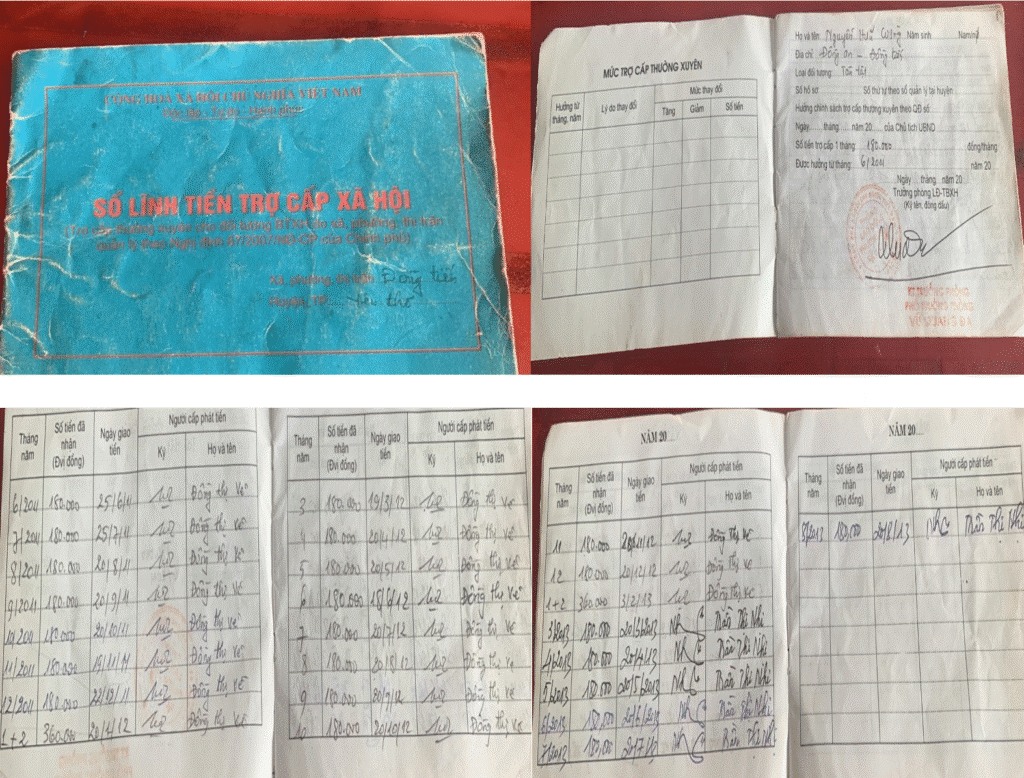 CỘNG HOÀ XÃ HỘI CHỦ NGHĨA VIỆT NAM
Độc lập - Tự do - Hạnh phúc
SỔ LĨNH TIỀN TRỢ CẤP XÃ HỘI
(Trợ cấp thường xuyên cho đối tượng BTXH do xã, phường, thị trấn
quản lý theo Nghị định 67/2007/NĐ-CP của Chính phủ)
Xã, phường, thị trấn Đồng tiến
Huyện, TP:
MỨC TRỢ CẤP THƯỜNG XUYÊN
Hưởng từ tháng, năm Lý do thay đổi Mức thay đổi
Tăng Giảm Số tiền
Họ và tên: Nguyễn Năm sinh Nam/nữ
Địa chỉ: Đồng an - Đồng tiến
Loại đối tượng: Tàn tật
Số hồ sơ Số thứ tự theo sổ quản lý tại huyện
Hưởng chính sách trợ cấp thường xuyên theo QĐ số:
Ngày.... tháng .... năm 20 .... của Chủ tịch UBND
Số tiền trợ cấp 1 tháng: 180.000 đồng/tháng
Được hưởng từ tháng: 6/2011 năm 20
Ngày .... tháng ... năm 20
Trưởng phòng LĐ-TBXH
(Ký tên, đóng dấu)
KT TRƯỞNG PHÒNG
PHÓ TRƯỞNG PHÒNG
Tháng năm Số tiền đã nhận (Đvị đồng) Ngày giao tiền Người cấp phát tiền
Ký Họ và tên
6/2011 180.000 25/6/11 Đồng thị vê
7/2011 180.000 25/7/11 Đồng thị vê
8/2011 180.000 20/8/11 Đồng thị vê
9/2011 180.000 20/9/11 Đồng thị vê
10/2011 180.000 20/10/11 Đồng thị vê
11/2011 180.000 19/11/11 Đồng thị vê
12/2011 180.000 Đồng thị vê
1+2 360.000 Đồng thị vê
Tháng năm Số tiền đã nhận (Đvị đồng) Ngày giao tiền Người cấp phát tiền
Ký Họ và tên
3 180.000 19/3/12 Đồng thị vê
4 180.000 20/4/12 Đồng thị vê
5 180.000 20/5/12 Đồng thị vê
6 180.000 18/6/12 Đồng thị vê
7 180.000 20/7/12 Đồng thị vê
8 180.000 20/8/12 Đồng thị vê
9 180.000 Đồng thị vê
180.000 20/10/12 Đồng thị vê
NĂM 20
Tháng năm Số tiền đã nhận (Đvị đồng) Ngày giao tiền Người cấp phát tiền
Ký Họ và tên
11 180.000 Đồng Thị vê
12 180.000 20/12/12 Đồng Thị vê
1+2 360.000 3/2/13 Đồng Thị vê
3/2013 180.000 Trần Thị Nhi
4/2013 180.000 20/4/13 Trần Thị Nhi
5/2013 180.000 20/5/2013 Trần Thị Nhi
6/2013 180.000 20/6/2013 Trần Thị Nhi
7/2013 180.000 Trần Thị Nhi
NĂM 20....
Tháng năm Số tiền đã nhận (Đvị đồng) Ngày giao tiền Người cấp phát tiền
Ký Họ và tên
8/2013 180.000 20/8/13 Trần Thị Nhi